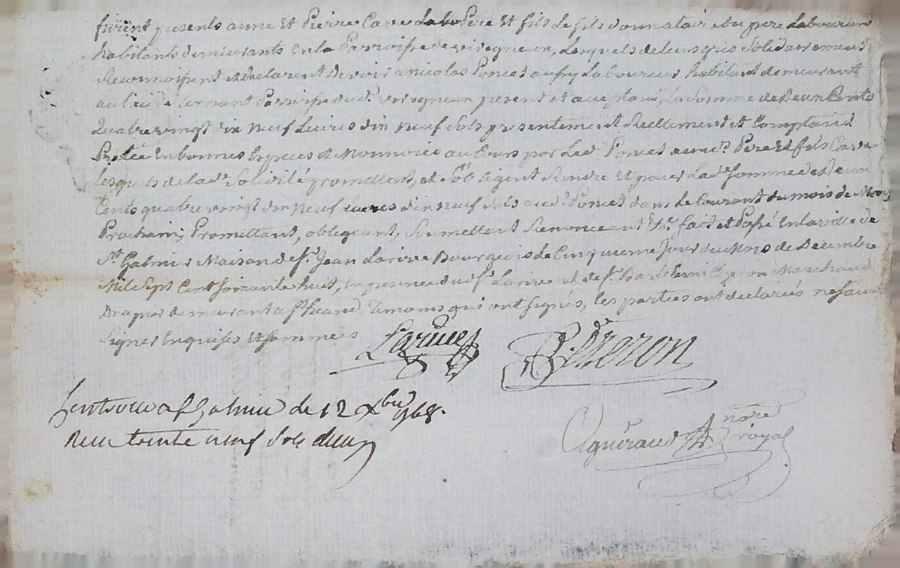 furent presents anne Et Pierre Care Labrs Pere Et fils Le fils donnataire du pere Laboureurs
habitants demeurants En la Parroisse de virigneux, Lesquels de leurs grés Solidairement
Reconnoissent et declarent Devoir a nicolas Poncet Laboureur habitant demeurant
au lieu de Parroisse dud. virigneux present et acceptant, La Somme de deux Cents
Quatre vingt dix neuf Livres dix neuf sols presentement Reellement et Comptant
Pretée En bonnes Especes et Monnoies au Cours par Led. Poncet auxd. Pere Et fils Care
lesquels de lad. Solidité promettent, et S'obligent Rendre Et payer Lad. somme de deux
Cents quatre vingt dix neuf Livres dix neuf sols aud. Poncet dans le Courant du mois de
Prochain, Promettant, obligeant, Soumettant Renonceant &c. fait et Passé En la ville de
St. Galmier Maison de Sr. Jean Larive Bourgeois Le Cinquieme Jour du Mois de Decembre
Mil Sept Cent soixante huit, En presence dud. sr. Larive et de Sr. Barthelemi Marchand
Drapier demeurant a St. heand Temoins qui ont signés, les parties ont declarés ne savoir
signer Enquises Et sommées
Larive
B
de 12 xbre 1768.
Reçu trente neuf sols
Agniraud nore
royal